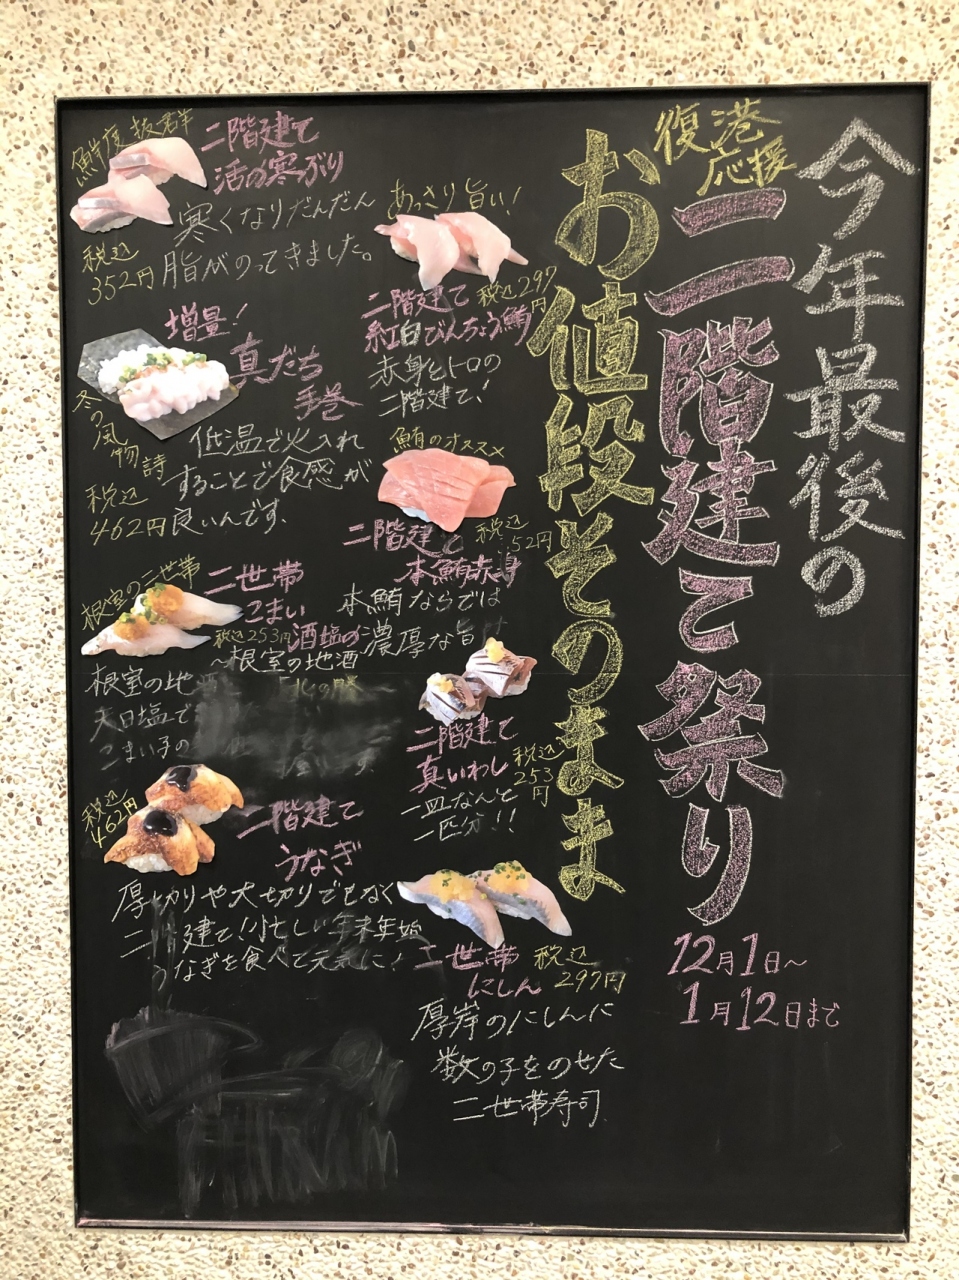 今年最後の
復港
応援
二階建て祭り
お値段そのまま
12月1日~
1月12日まで
鮮度抜群
二階建て
活の寒ぶり
寒くなりだんだん
脂がのってきました。
税込
352円
あっさり旨い!
二階建て
税込297
円
紅白びんちょう鮪
赤身とトロの
二階建て!
増量!
真だち
手巻
冬の風物詩
低温で火入れ
することで食感が
良いんです。
税込
462円
鮪のオススメ
二階建て
税込
52円
本鮪赤身
本鮪ならでは
濃厚な旨
根室の二世帯
二世帯
こまい
税込253円
酒塩の
~根室の地酒
北の勝
根室の地
天日塩で
こまい子の
す
二階建て
真いわし
税込
253
円
一皿なんと
一匹分!!
税込
462円
二階建て
うなぎ
厚切りや大切りでもなく
二階建て!忙しい年末年始
うなぎを食べて元気に!
二世帯
にしん
税込
297円
厚岸のにしんに
数の子をのせた
二世帯寿司